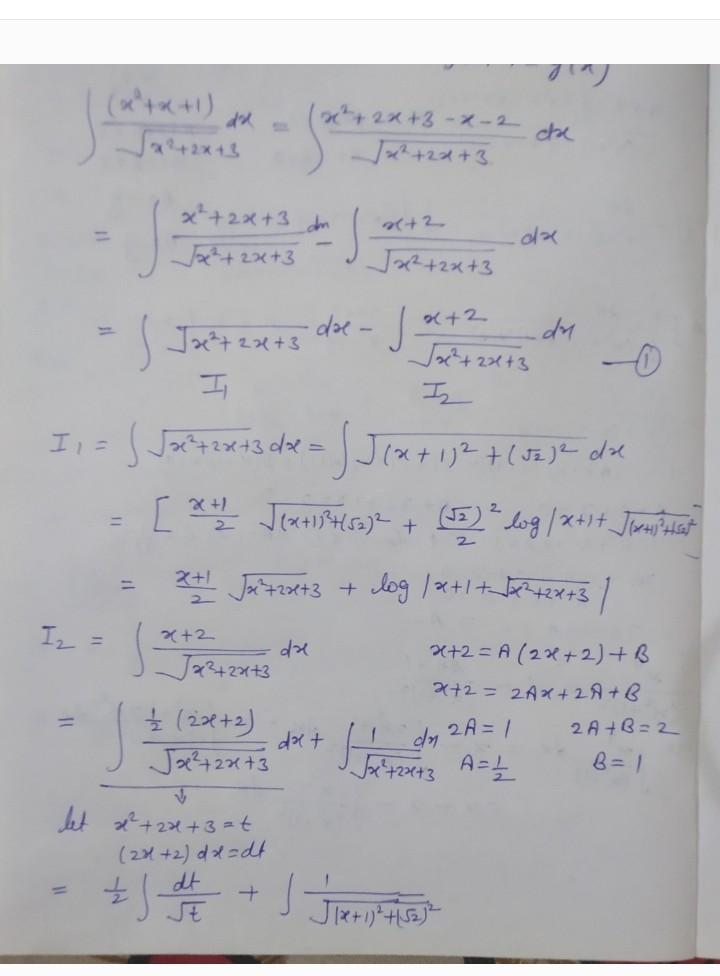 y(x)
∫ (x²+x+1)/√(x²+2x+3) dx = ∫ (x²+2x+3-x-2)/√(x²+2x+3) dx
= ∫ (x²+2x+3)/√(x²+2x+3) dx - ∫ (x+2)/√(x²+2x+3) dx
= ∫ √(x²+2x+3) dx - ∫ (x+2)/√(x²+2x+3) dx —①
I₁ I₂
I₁ = ∫ √(x²+2x+3) dx = ∫ √((x+1)²+(√2)²) dx
= [ (x+1)/2 √((x+1)²+(√2)²) + (√2)²/2 log|x+1+√((x+1)²+(√2)²)
= (x+1)/2 √(x²+2x+3) + log|x+1+√(x²+2x+3)|
I₂ = ∫ (x+2)/√(x²+2x+3) dx x+2 = A(2x+2)+B
x+2 = 2Ax+2A+B
= ∫ ½(2x+2)/√(x²+2x+3) dx + ∫ 1/√(x²+2x+3) dx 2A=1 2A+B=2
A=½ B=1
↓
let x²+2x+3=t
(2x+2)dx=dt
= ½ ∫ dt/√t + ∫ 1/√((x+1)²+(√2)²)